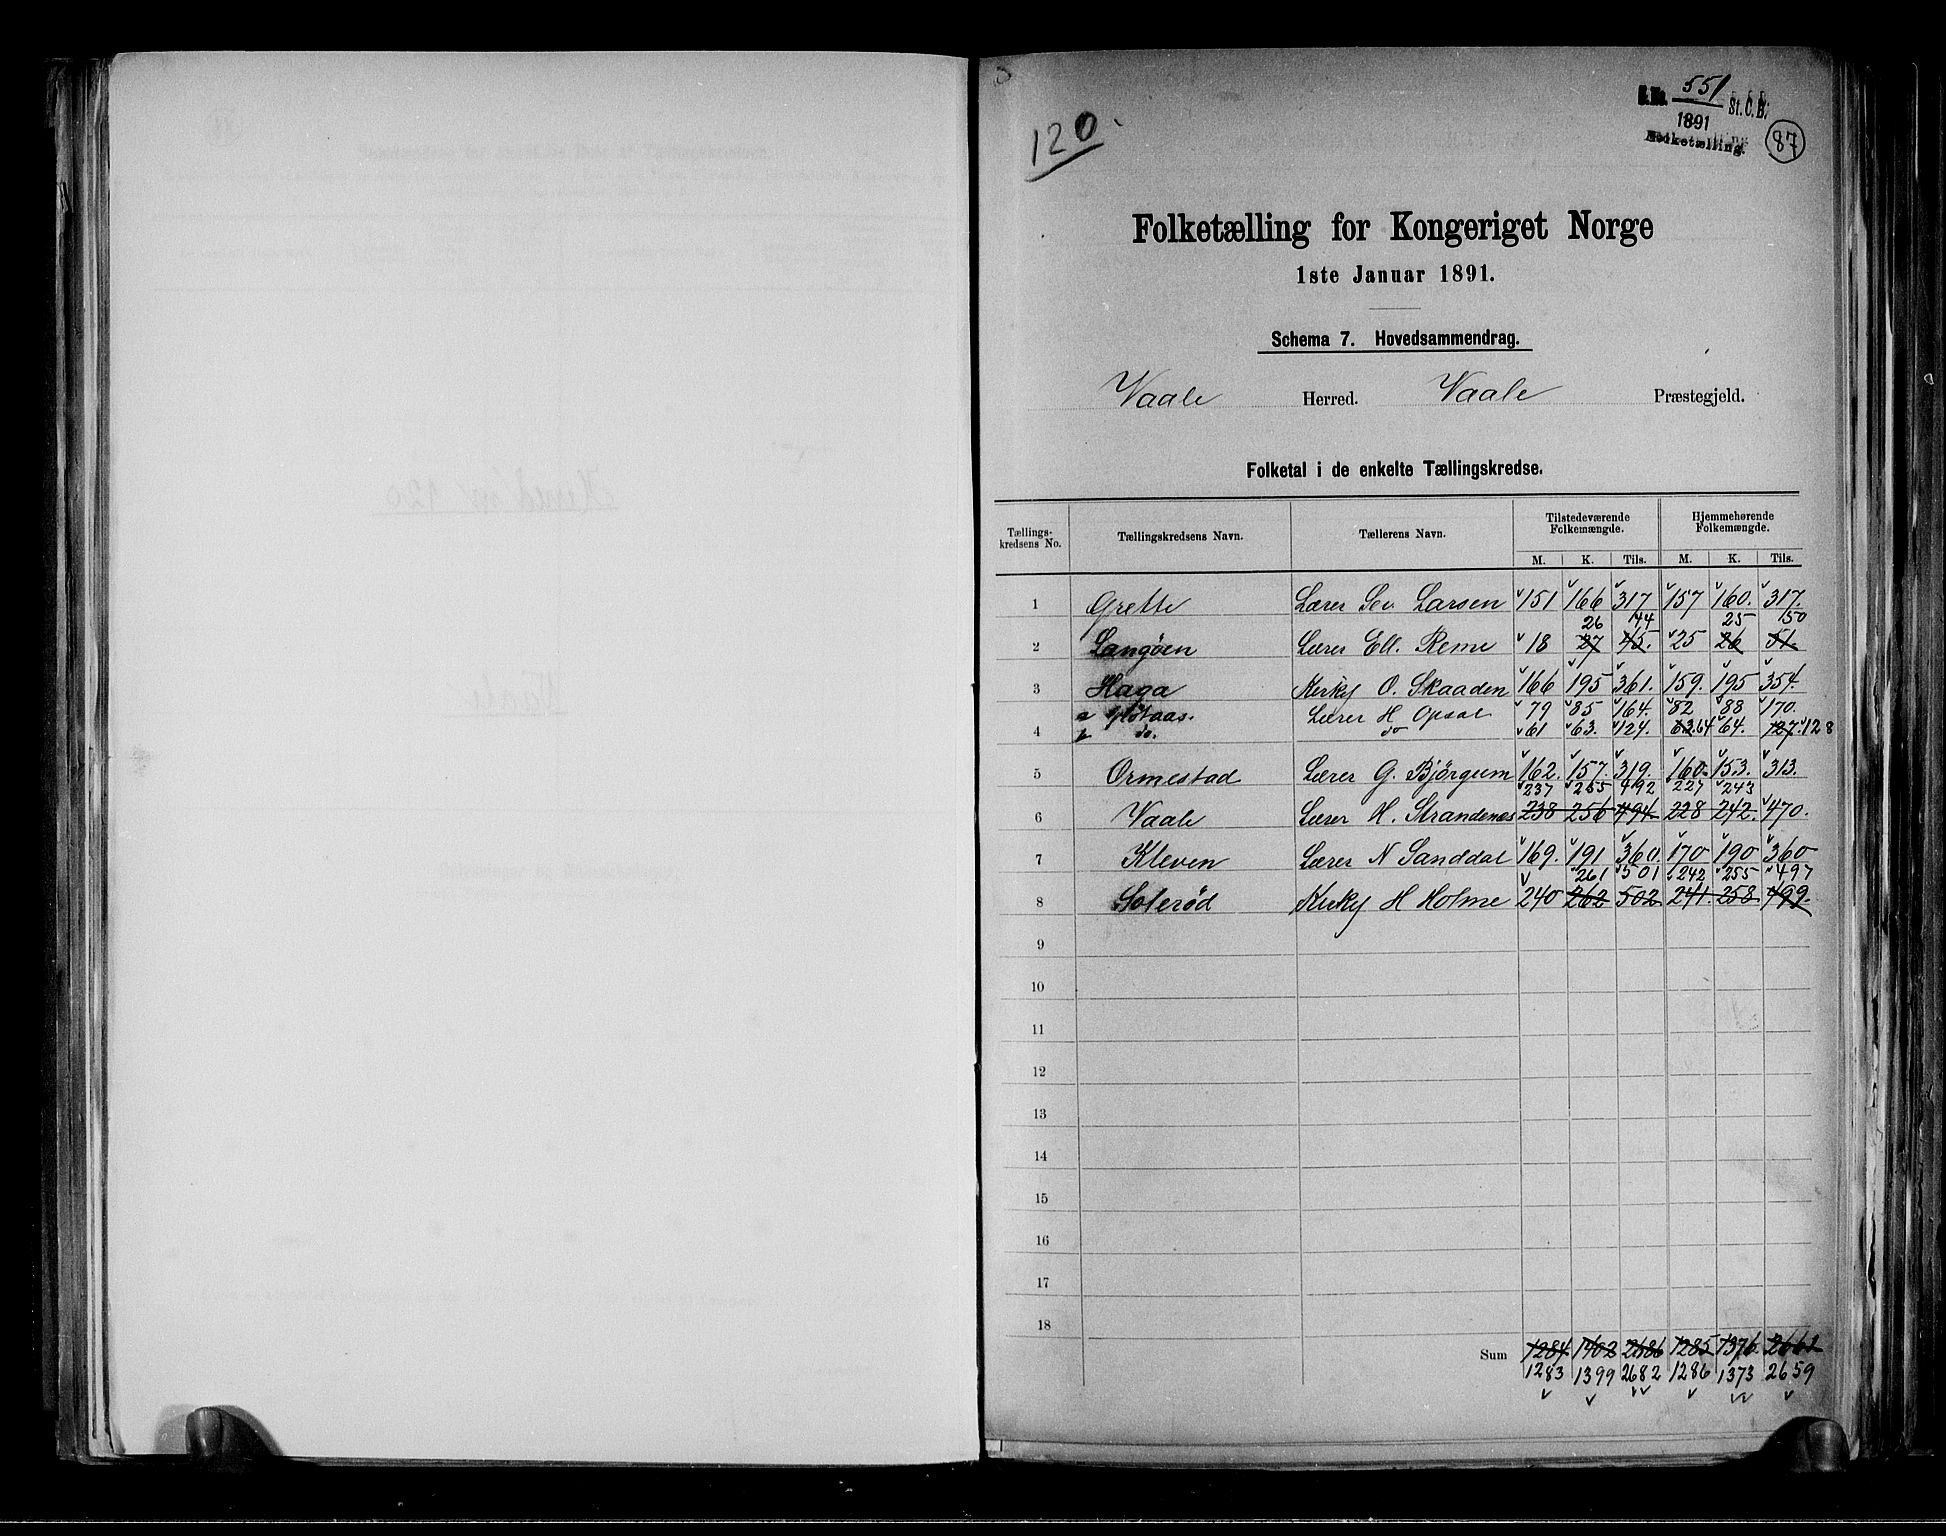 120.
551
1891
St. C. B.
Folketælling.
87
Folketælling for Kongeriget Norge
1ste Januar 1891.
Schema 7. Hovedsammendrag.
Vaale Herred. Vaale Præstegjeld.
Folketal i de enkelte Tællingskredse.
Tællings-kredsens No. Tællingskredsens Navn. Tællerens Navn. Tilstedeværende Folkemængde. Hjemmehørende Folkemængde.
M. K. Tils. M. K. Tils.
1 Grette Lærer Sev Larsen 151 166 317 157 160. 317.
26 44 25 50
2 Langøen Lærer Ell. Reme 18 27 45. 25 26 51
3 Haga Kirks O. Skaaden 166 195 361. 159. 195 354.
a Lærer H Opsal 79 85 164. 82 88 170.
4 b do. do 61 63. 124. 63. 64 64. 127. 128
5 Ormestad Lærer G. Bjørgum 162. 157. 319. 160. 153. 313.
237 255 492 227 243
6 Vaale Lærer H. Strandenæs 238 256 494 228 242. 470.
7 Kleven Lærer N Sanddal 169. 191 360. 170 190 360
261 501 242 255 497
8 Solerød Kirks H Holme 240 262 502 241. 258 499.
9
10
11
12
13
14
15
16
17
18
Sum 1284 1402 2686 1285 1376. 2661
1283 1399 2682 1286 1373 2659